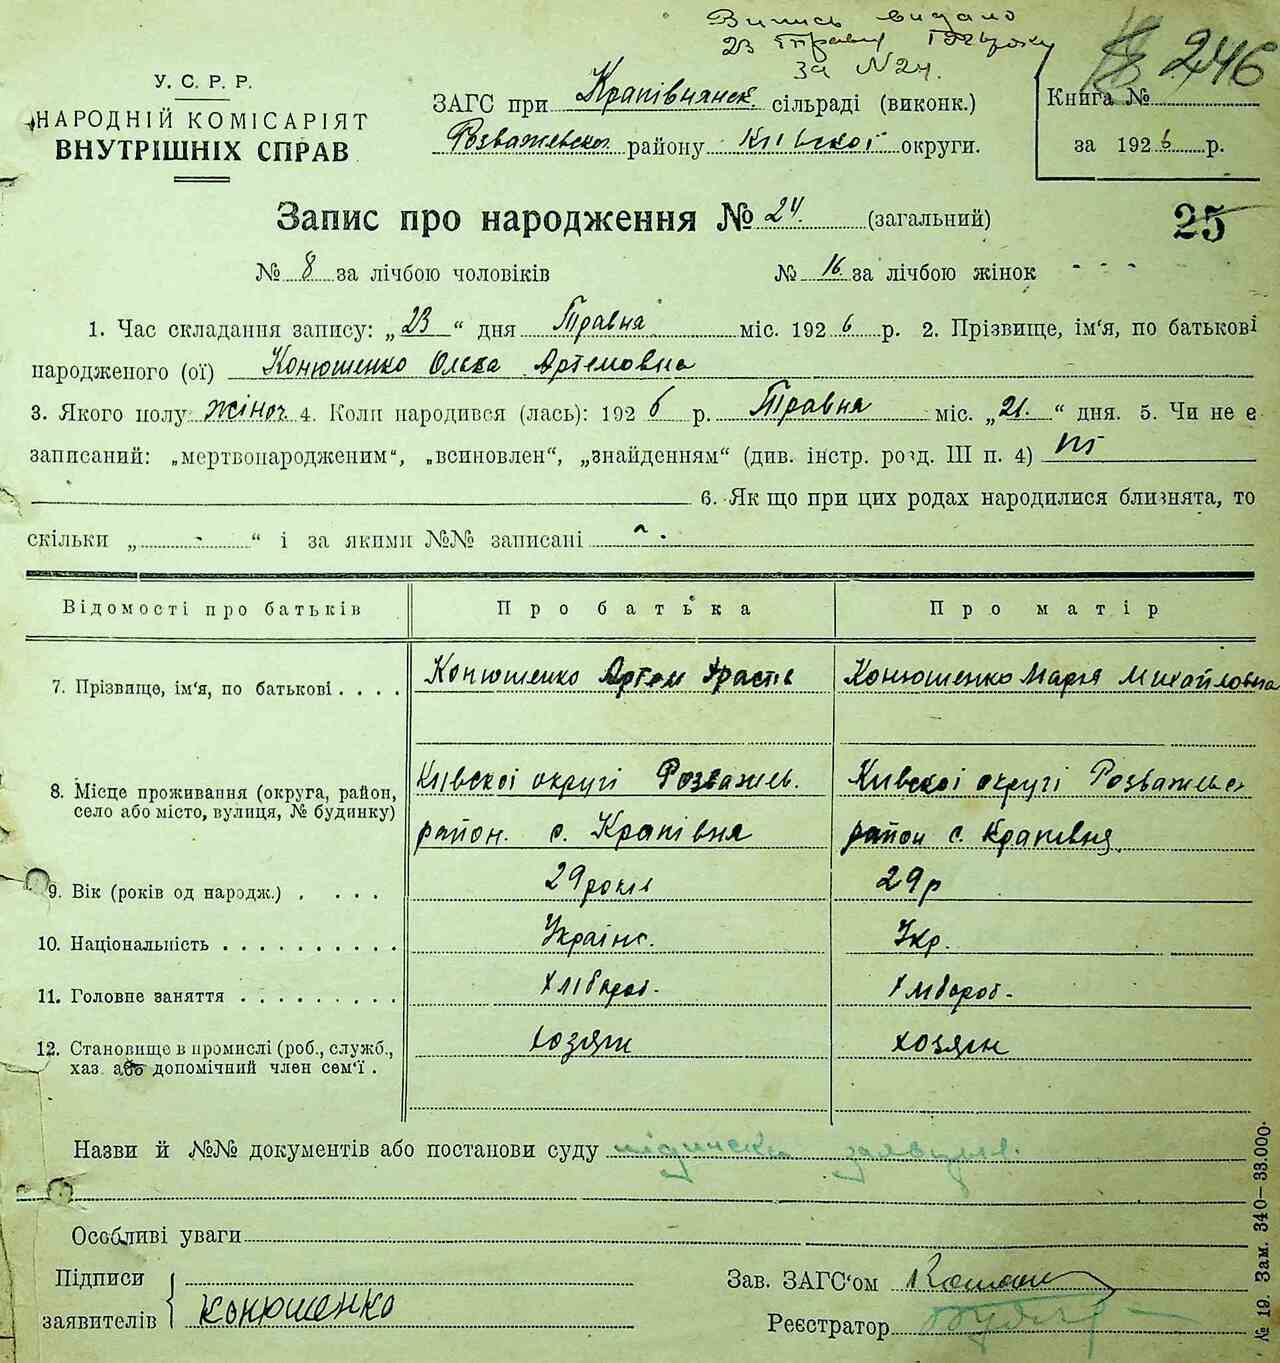 Випись видано
23 Травня 1926 року
за N24.
246
У. С. Р. Р.
НАРОДНІЙ КОМІСАРІЯТ
ВНУТРІШНІХ СПРАВ
ЗАГС при Крапівнянск. сільраді (виконк.)
Розважевско району Київскої округи.
Книга №
за 1926 р.
Запис про народження № 24. (загальний)
25
№ 8 за лічбою чоловіків № 16 за лічбою жінок
1. Час складання запису: „23“ дня Травня міс. 1926 р. 2. Прізвище, ім‘я, по батькові
народженого (ої) Конюшенко Ольга Артемовна
3. Якого полу жіноч 4. Коли народився (лась): 1926 р. Травня міс. „21.“ дня. 5. Чи не є
записаний: „мертвонародженим“, „всиновлен“, „знайденням“ (див. інстр. розд. III п. 4) ні
6. Як що при цих родах народилися близнята, то
скільки „ - “ і за якими №№ записані
Відомості про батьків Про батька Про матір
7. Прізвище, ім‘я, по батькові . . . . Конюшенко Артем Конюшенко Марія Михайловна
8. Місце проживання (округа, район, село або місто, вулиця, № будинку) Київскої округі Розважев. Київскої округі Розважевс
район. с. Крапівня район с. Крапівня
9. Вік (років од народж.) . . . . 29 років 29 р
10. Національність . . . . . . . . . . Українс. Укр.
11. Головне заняття . . . . . . . . . Хлібороб. Хлібороб.
12. Становище в промислі (роб., служб., хозяїн хозяїн
хаз. або допомічний член сем‘ї .
Назви й №№ документів або постанови суду
Особливі уваги
Підписи
заявителів Конюшенко
Зав. ЗАГС‘ом
Реєстратор
№ 19. Зам. 340—33.000.